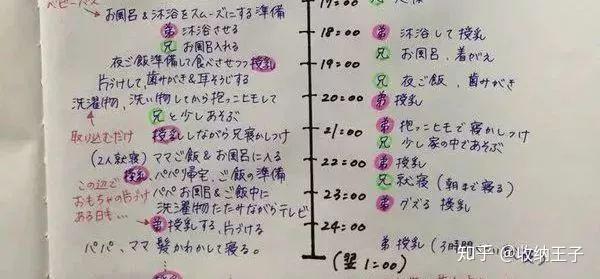 ベビーバス
お風呂&沐浴をスムーズにする準備
弟 沐浴させる
兄 お風呂入れる
夜ご飯準備して食べさせつつ授乳
片づけして、歯みがき&耳そうじする
洗濯物、洗い物してから抱っこヒモして
兄と少しあそぶ
取り込むだけ
授乳しながら兄寝かしつけ
(2人就寝) ママご飯&お風呂に入る
授乳 パパ帰宅、ご飯の準備
この辺で
おもちゃの片づけ
ある日も…
パパお風呂&ご飯中に
洗濯物たたみながらテレビ
弟授乳する、片づける
パパ、ママ 髪かわかして寝る。
17:00
18:00
19:00
20:00
21:00
22:00
23:00
24:00
(翌1:00)
弟 沐浴して授乳
兄 お風呂、着がえ
兄 夜ご飯、歯みがき
弟 授乳
弟 抱っこヒモで寝かしつけ
兄 少し家の中であそぶ
弟 授乳
兄 就寝(朝まで寝る)
弟 グズる 授乳
弟 授乳(3時間
知乎 @收纳王子